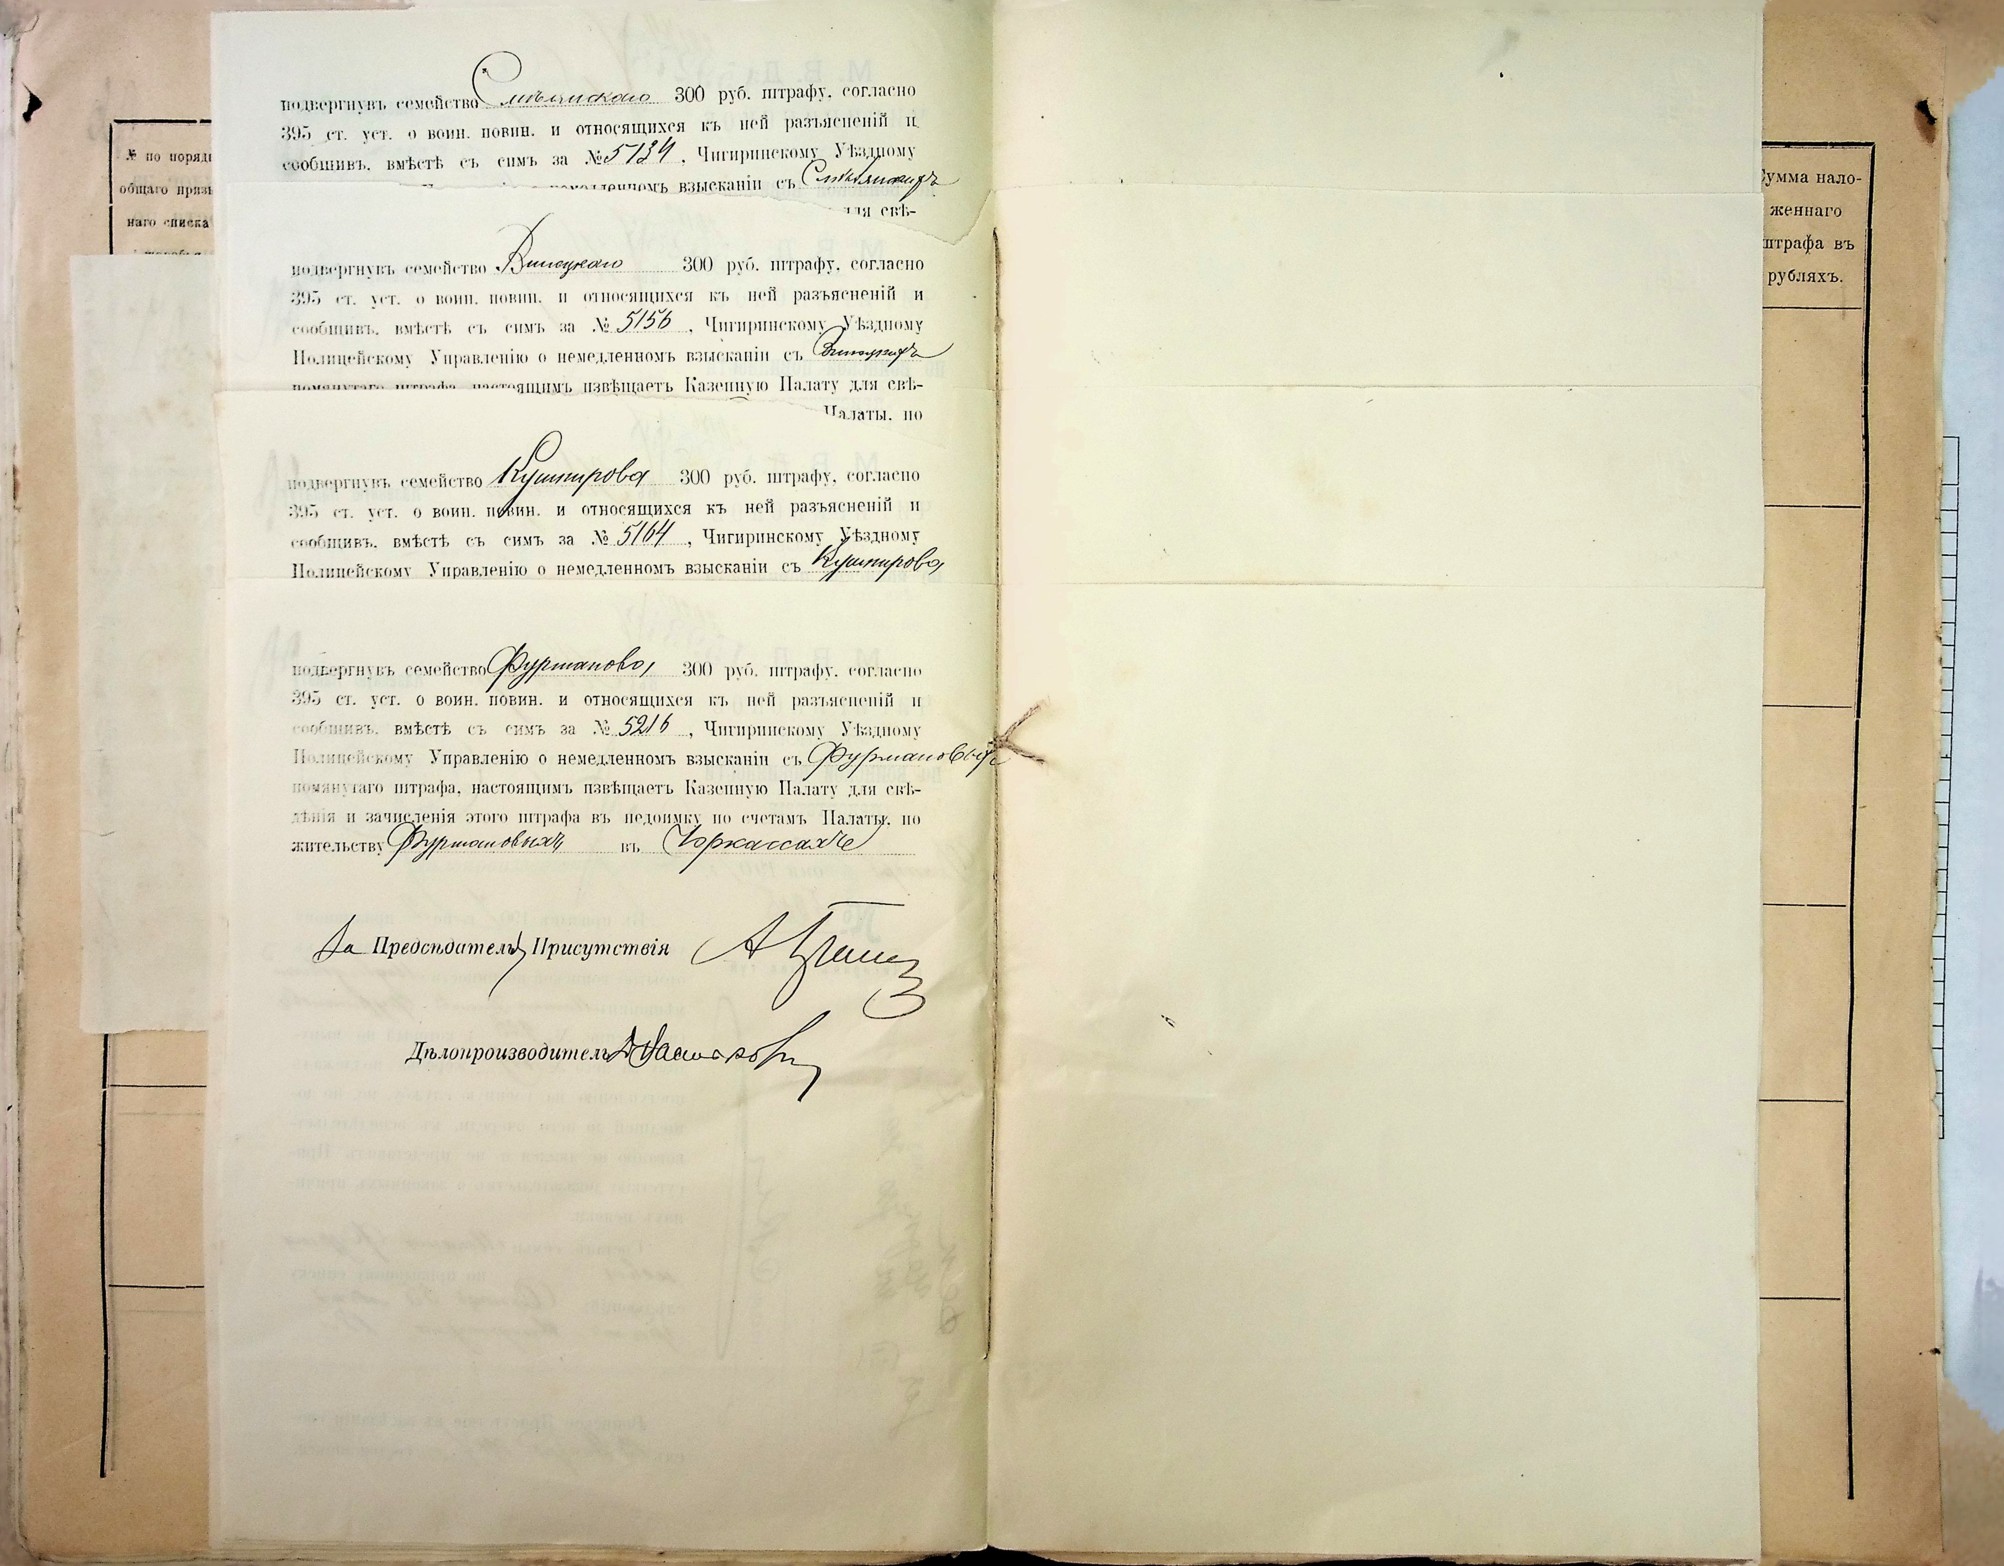 № по поряд
общаго призы
наго списка
подвергнувъ семейство Смѣлянскаго 300 руб. штрафу, согласно
395 ст. уст. о воин. повин. и относящихся къ ней разъясненій и
сообщивъ, вмѣстѣ съ симъ за № 5134, Чигиринскому Уѣздному
взысканіи съ Смѣлянскихъ
для свѣ-
подвергнувъ семейство Винецкаго 300 руб. штрафу, согласно
395 ст. уст. о воин. повин. и относящихся къ ней разъясненій и
сообщивъ, вмѣстѣ съ симъ за № 5156, Чигиринскому Уѣздному
Полицейскому Управленію о немедленномъ взысканіи съ Винецкихъ
помянутаго штрафа, настоящимъ извѣщаетъ Казенную Палату для свѣ-
Палаты, по
подвергнувъ семейство Кушнирова 300 руб. штрафу, согласно
395 ст. уст. о воин. повин. и относящихся къ ней разъясненій и
сообщивъ, вмѣстѣ съ симъ за № 5164, Чигиринскому Уѣздному
Полицейскому Управленію о немедленномъ взысканіи съ Кушнирова
подвергнувъ семейство Фурманова 300 руб. штрафу, согласно
395 ст. уст. о воин. повин. и относящихся къ ней разъясненій и
сообщивъ, вмѣстѣ съ симъ за № 5216, Чигиринскому Уѣздному
Полицейскому Управленію о немедленномъ взысканіи съ Фурмановыхъ
помянутаго штрафа, настоящимъ извѣщаетъ Казенную Палату для свѣ-
дѣнія и зачисленія этого штрафа въ недоимку по счетамъ Палаты, по
жительству Фурмановыхъ въ Черкассахъ
За Предсѣдателя Присутствія
Дѣлопроизводитель
Сумма нало-
женнаго
штрафа въ
рубляхъ.